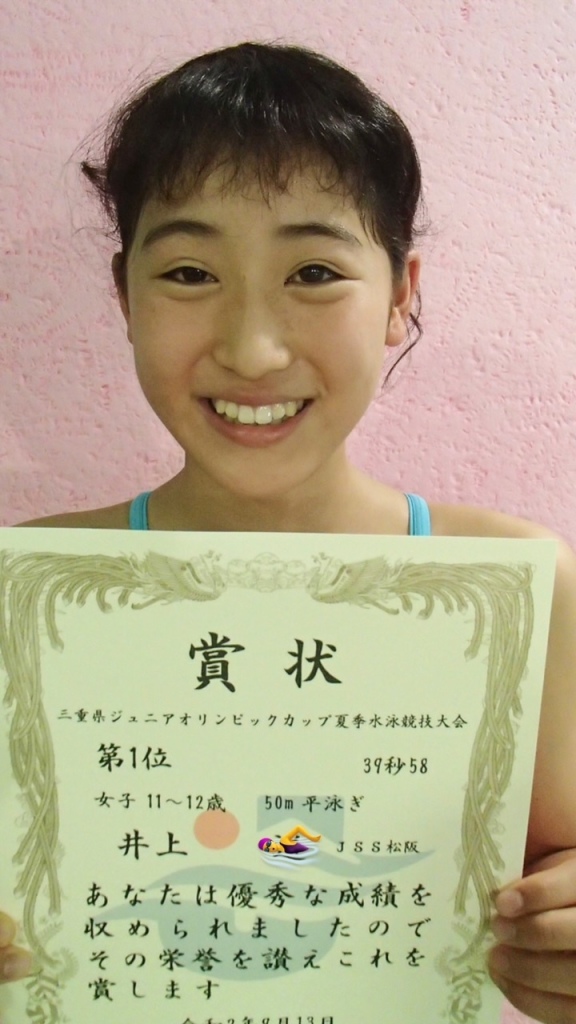 賞状
三重県ジュニアオリンピックカップ夏季水泳競技大会
第1位 39秒58
女子 11～12歳 50m 平泳ぎ
井上 JSS松阪
あなたは優秀な成績を
収められましたので
その栄誉を讃えこれを
賞します